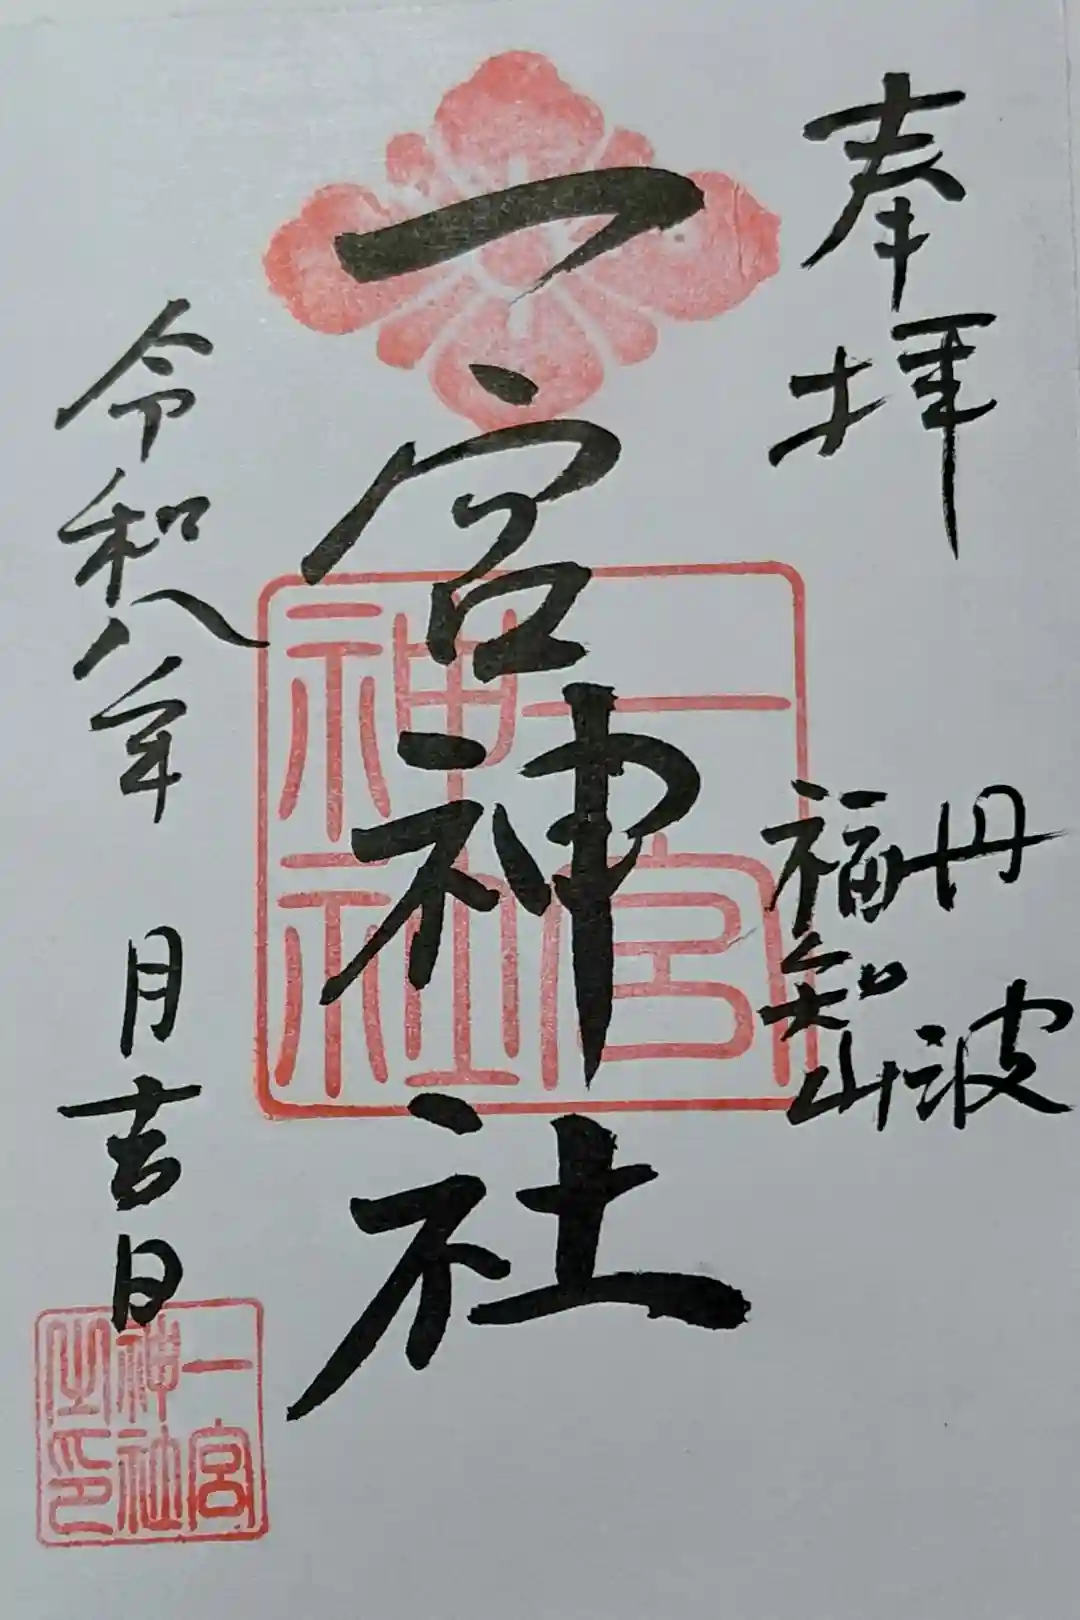 奉拝
丹波
福知山
一宮神社
一宮神社
令和八年 月吉日
一宮神社之印